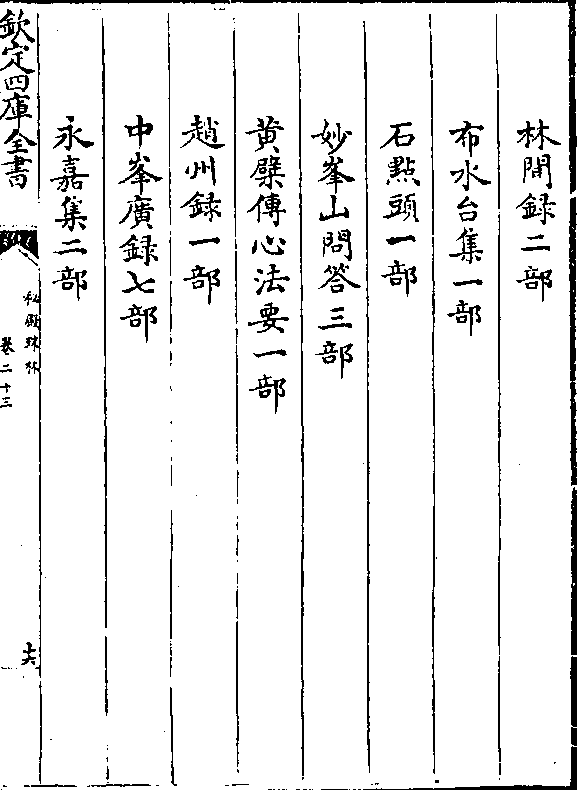 林間録二部
布水台集一部
石㸃頭一部
妙峯山問答三部
黄檗傳心法要一部
趙州録一部
中峯廣録七部
永嘉集二部
欽定四庫全書
秘殿珠林
卷二十三
十六